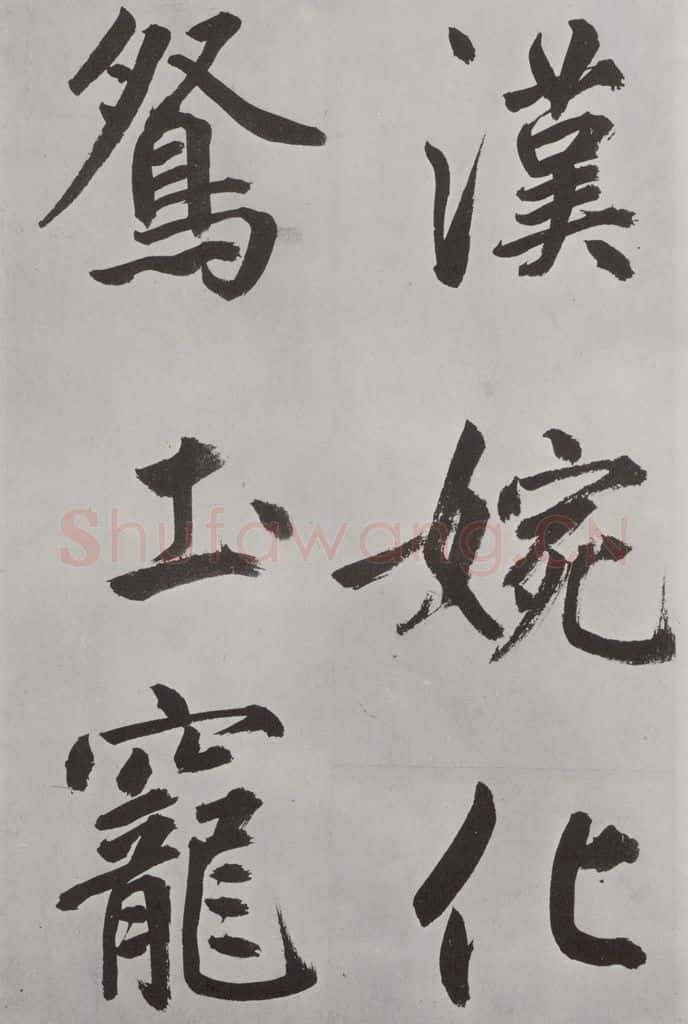 漢婉化
鴛土寵
Shufawang.CN